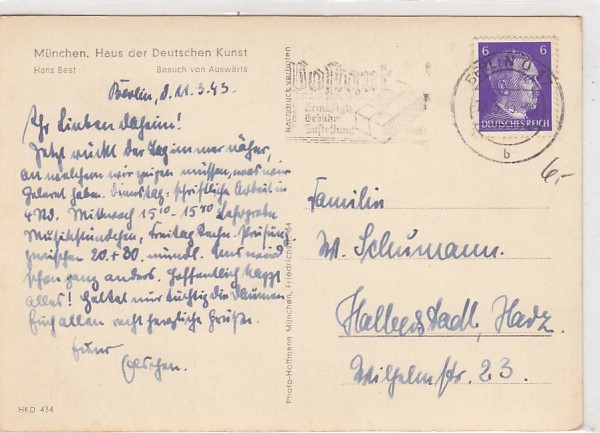 München. Haus der Deutschen Kunst
Hans Best Besuch von Auswärts
Berlin, d. 11.3.43.
Ihr Lieben daheim!
Jetzt rückt der Tag immer näher,
an welchem wir zeigen müssen, was wir
gelernt haben. Dienstag: schriftliche Arbeit in
4 Std. Mittwoch 15¹⁰ - 15⁴⁰ Lehrprobe
Musikstündchen, Freitag Prüfung
zwischen 20 + 30. mündl. Uns wird
schon ganz anders. Hoffentlich klappt
alles! Haltet nur tüchtig die Daumen
Euch allen recht herzliche Grüße.
Eure
HKD 434
Nachdruck verboten
Photo-Hoffmann, München, Friedrichstr. 34
Postpaket
Gebühr
Zustellung
BERLIN
b
6 6
DEUTSCHES REICH
6,-
Familie
W. Schumann.
Halberstadt, Harz.
Wilhelmstr. 23.